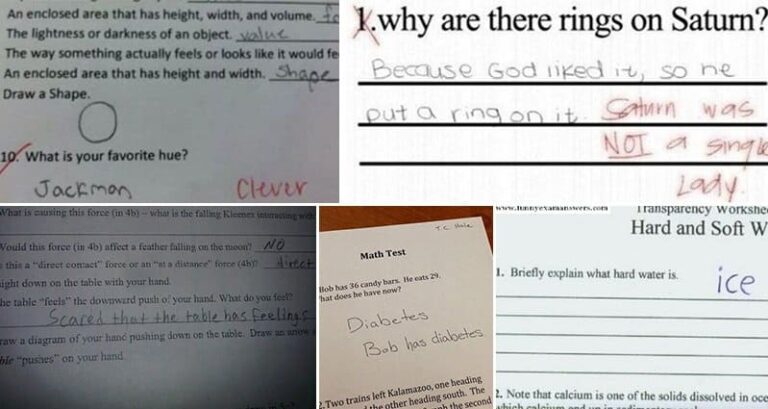 An enclosed area that has height, width, and volume.
The lightness or darkness of an object. value
The way something actually feels or looks like it would fe
An enclosed area that has height and width. Shape
Draw a Shape.
10. What is your favorite hue?
Jackman Clever
1. why are there rings on Saturn?
Because God liked it, so he
put a ring on it Saturn was
NOT a single
Lady.
What is causing this force (in 4b) – what is the falling Kleenex interacting with
Would this force (in 4b) affect a feather falling on the moon? NO
this a "direct contact" force or an "at a distance" force (4b)? direct
ight down on the table with your hand.
he table "feels" the downward push of your hand. What do you feel?
Scared that the table has feelings
raw a diagram of your hand pushing down on the table. Draw an arrow
ble "pushes" on your hand.
T.C.
Math Test
Bob has 36 candy bars. He eats 29.
hat does he have now?
Diabetes
Bob has diabetes
2. Two trains left Kalamazoo, one heading
the other heading south. The
the second
www.funnyexamanswers.com
Transparency Workshe
Hard and Soft W
1. Briefly explain what hard water is.
ice
2. Note that calcium is one of the solids dissolved in oce